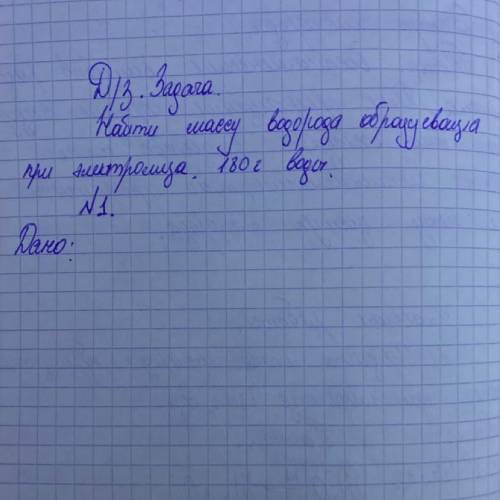 Д/з. Задача.
Найти массу водорода образуеваца
при электролиза. 180 г воды.
N1.
Дано: